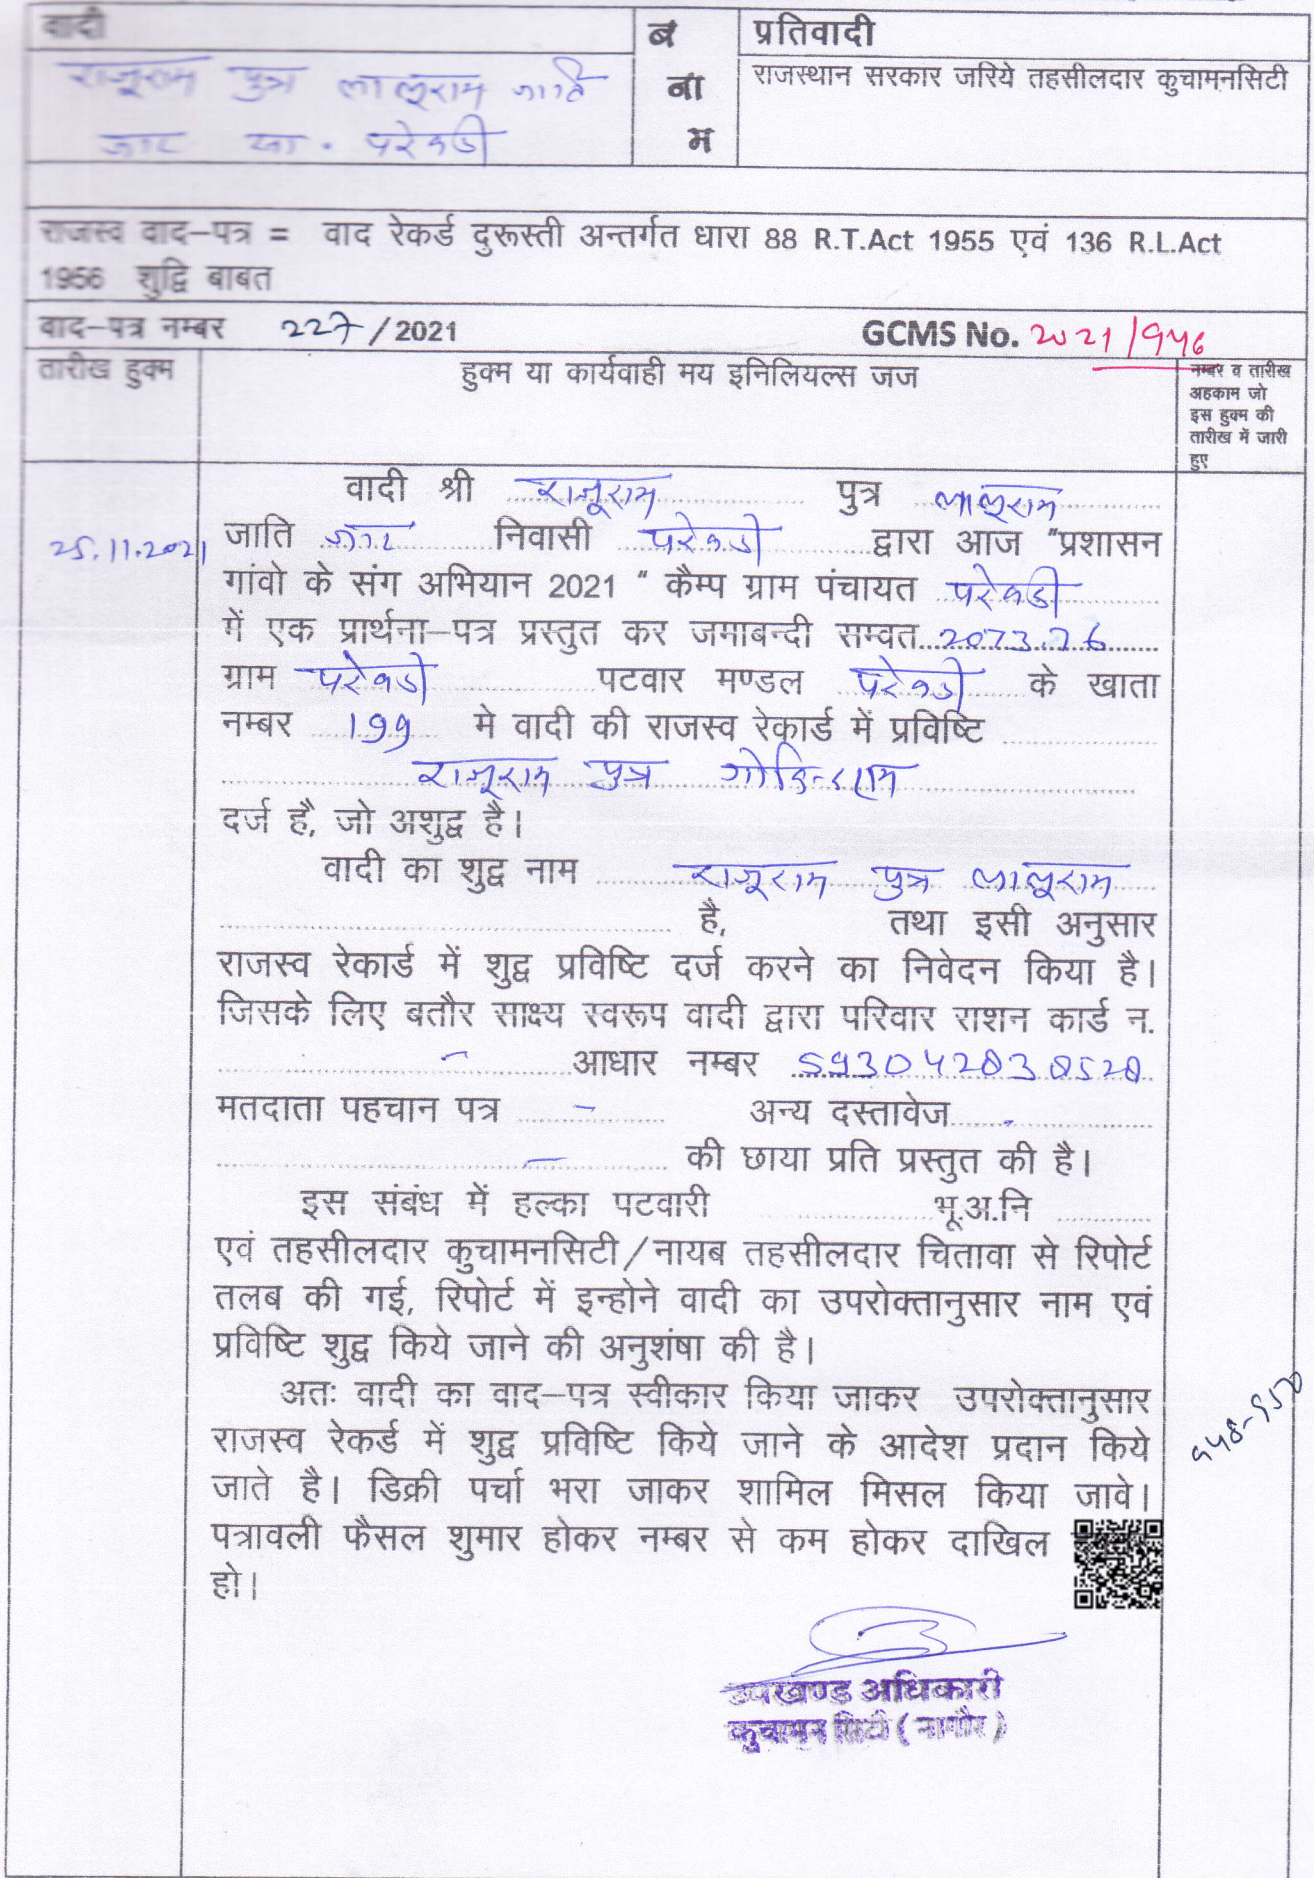 वादी
ब
ना
म
प्रतिवादी
राजूराम पुत्र लालूराम जाति
जाट सा. परेवडी
राजस्थान सरकार जरिये तहसीलदार कुचामनसिटी
राजस्व वाद–पत्र = वाद रेकर्ड दुरूस्ती अन्तर्गत धारा 88 R.T.Act 1955 एवं 136 R.L.Act
1956 शुद्वि बाबत
वाद–पत्र नम्बर 227/2021 GCMS No. 2021/946
तारीख हुक्म
हुक्म या कार्यवाही मय इनिलियल्स जज
नम्बर व तारीख
अहकाम जो
इस हुक्म की
तारीख में जारी
हुए
25.11.2021
वादी श्री राजूराम पुत्र लालूराम
जाति जाट निवासी परेवडी द्वारा आज "प्रशासन
गांवो के संग अभियान 2021 " कैम्प ग्राम पंचायत परेवडी
में एक प्रार्थना–पत्र प्रस्तुत कर जमाबन्दी सम्वत 2073.76
ग्राम परेवडी पटवार मण्डल परेवडी के खाता
नम्बर 199 मे वादी की राजस्व रेकार्ड में प्रविष्टि
राजूराम पुत्र गोविन्दराम
दर्ज है, जो अशुद्व है।
वादी का शुद्व नाम राजूराम पुत्र लालूराम
है, तथा इसी अनुसार
राजस्व रेकार्ड में शुद्व प्रविष्टि दर्ज करने का निवेदन किया है।
जिसके लिए बतौर साक्ष्य स्वरूप वादी द्वारा परिवार राशन कार्ड न.
– आधार नम्बर
मतदाता पहचान पत्र – अन्य दस्तावेज -
– की छाया प्रति प्रस्तुत की है।
इस संबंध में हल्का पटवारी भू.अ.नि
एवं तहसीलदार कुचामनसिटी/नायब तहसीलदार चितावा से रिपोर्ट
तलब की गई, रिपोर्ट में इन्होने वादी का उपरोक्तानुसार नाम एवं
प्रविष्टि शुद्व किये जाने की अनुशंषा की है।
अतः वादी का वाद–पत्र स्वीकार किया जाकर उपरोक्तानुसार
राजस्व रेकर्ड में शुद्व प्रविष्टि किये जाने के आदेश प्रदान किये
जाते है। डिक्री पर्चा भरा जाकर शामिल मिसल किया जावे।
पत्रावली फैसल शुमार होकर नम्बर से कम होकर दाखिल
हो।
उपखण्ड अधिकारी
कुचामन सिटी ( नागौर )